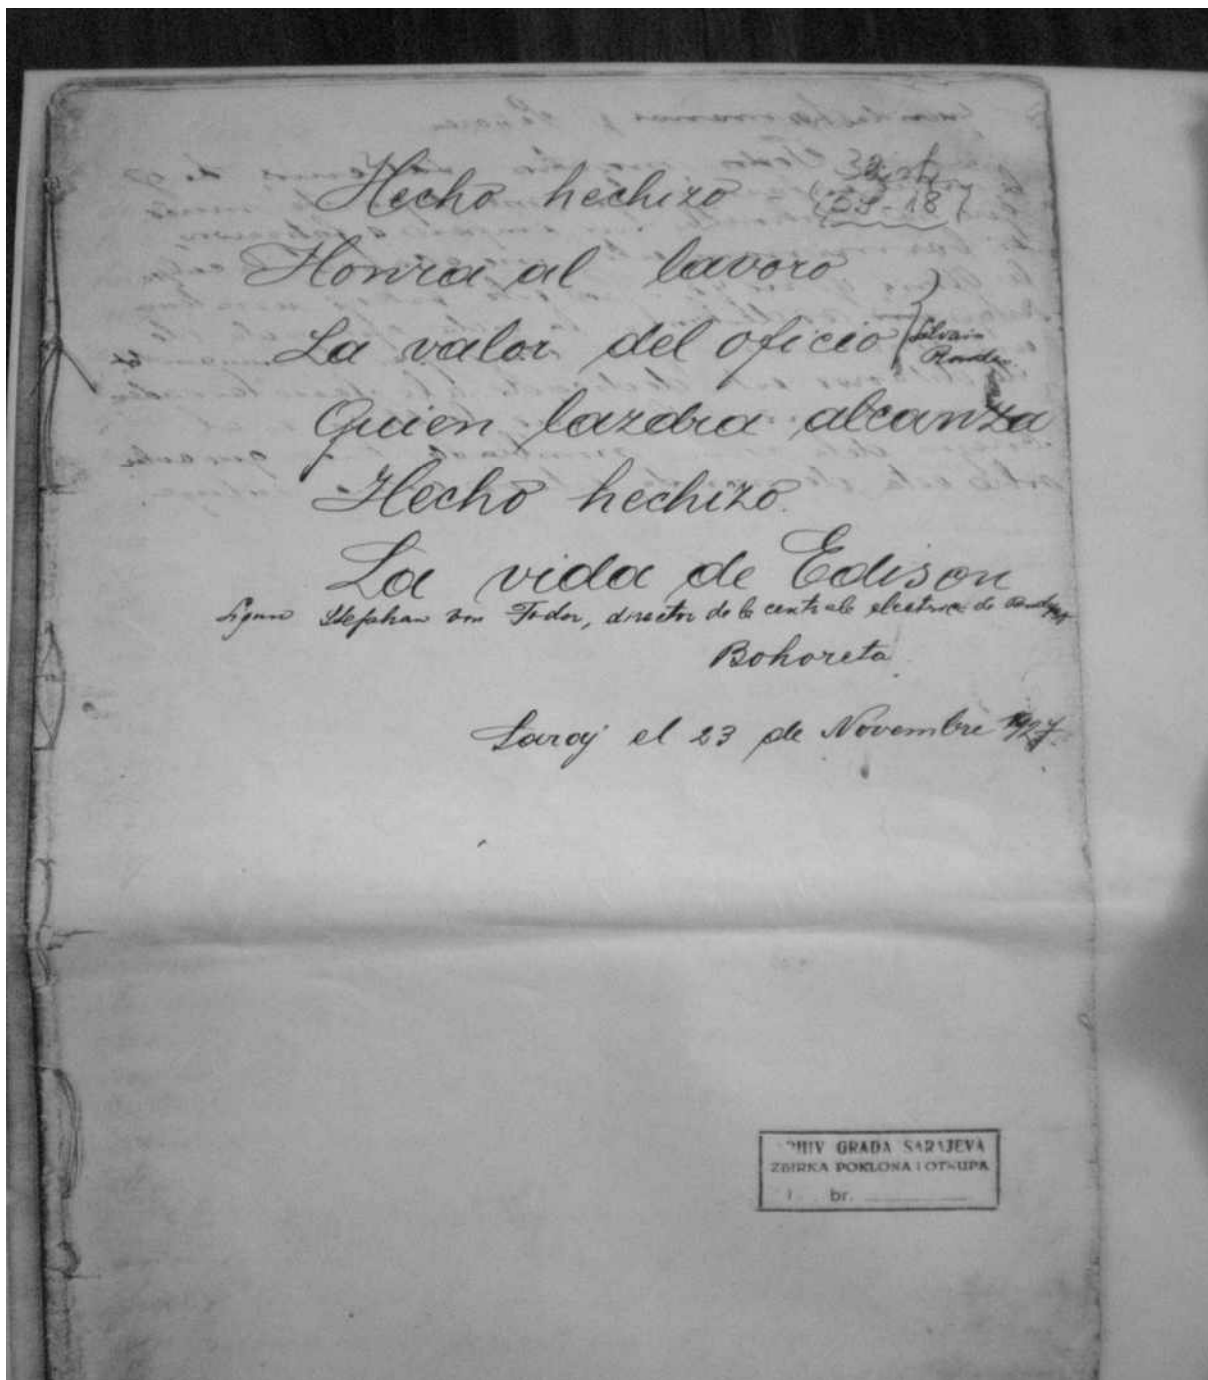 Hecho hechizo
Honra al lavoro
La valor del oficio
Quien lazdra alcanza
Hecho hechizo.
La vida de Edison
Stephan von Fodor, director de la centrale electrica de
Bohoreta
Saraj el 23 de Novembre 1927.
GRADA SARAJEVA
ZBIRKA POKLONA I OTKUPA
br.